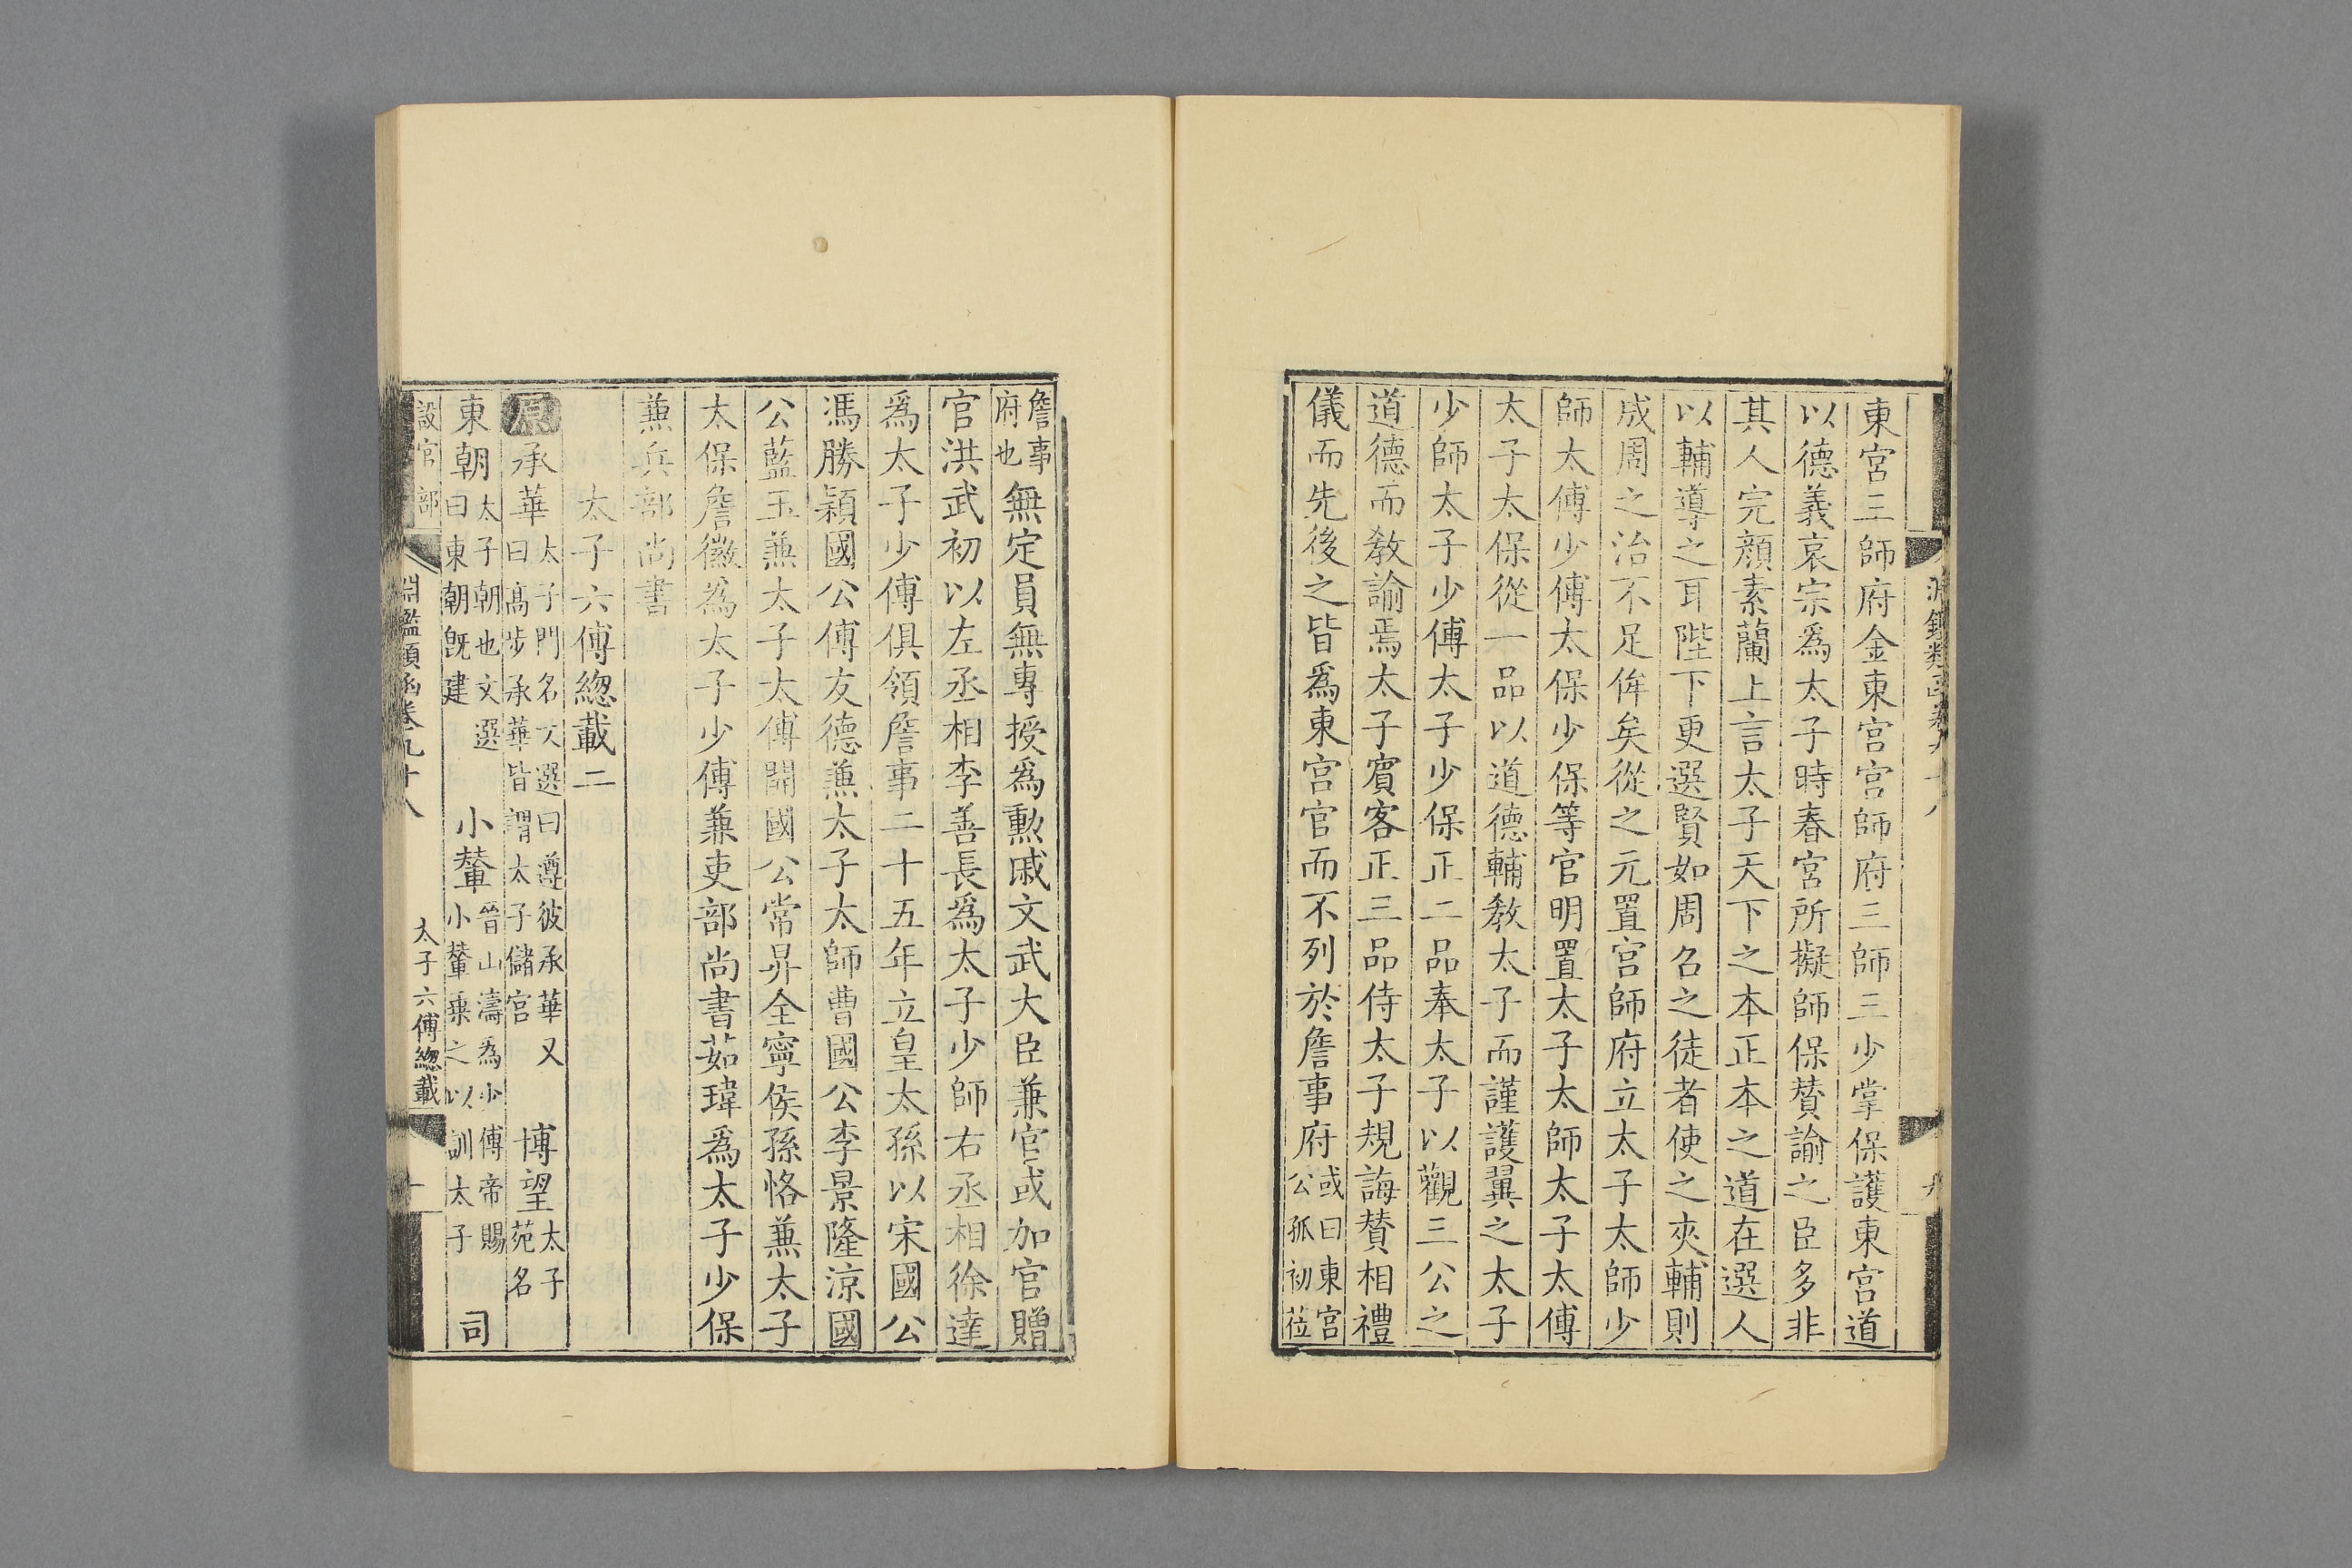 東宮三師府金東宮宮師府三師三少掌保護東宮道
以德義哀宗爲太子時春宮所擬師保賛諭之臣多非
其人完顏素蘭上言太子天下之本正本之道在選人
以輔導之耳陛下更選賢如周召之徒者使之夾輔則
成周之治不足侔矣從之元置宮師府立太子太師少
師太傅少傅太保少保等官明置太子太師太子太傅
太子太保從一品以道德輔教太子而謹護翼之太子
少師太子少傅太子少保正二品奉太子以觀三公之
道德而敎諭焉太子賓客正三品侍太子規誨賛相禮
儀而先後之皆爲東宮官而不列於詹事府或曰東宮公孤初莅
詹事府也無定員無專授爲勲戚文武大臣兼官或加官贈
官洪武初以左丞相李善長爲太子少師右丞相徐達
爲太子少傅俱領詹事二十五年立皇太孫以宋國公
馮勝潁國公傅友德兼太子太師曹國公李景隆涼國
公藍玉兼太子太傅開國公常昇全寧侯孫恪兼太子
太保詹徽爲太子少傅兼吏部尚書茹瑋爲太子少保
兼兵部尚書
太子六傅緫載二
原承華太子門名文選曰遵彼承華又曰髙步承華皆謂太子儲宮 博望太子苑名
東朝太子朝也文選曰東朝旣建 小輦晉山濤為少傅帝賜小輦乘之以訓太子 司
設官部 淵鑑類函卷九十八 太子六傅緫載 十